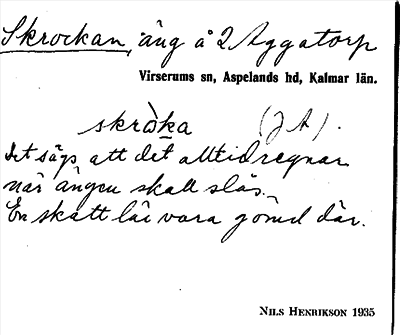 Skrockan, äng å 2 Aggatorp
Virserums sn, Aspelands hd, Kalmar län.
skròka (J A).
Det säges att det alltid regnar
när ängen skall slås.
En skatt lär vara gömd där.
NILS HENRIKSON 1935